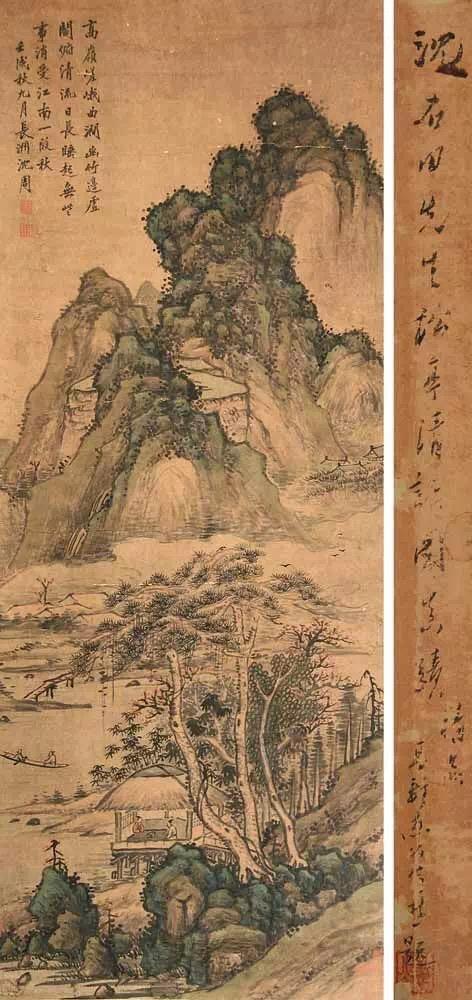 高嶺嵯峨西澗幽竹邊虛
閣俯清流日長睡起無些
事消受江南一段秋
壬戌秋九月長洲沈周
沈石田先生松亭清話圖真蹟
題